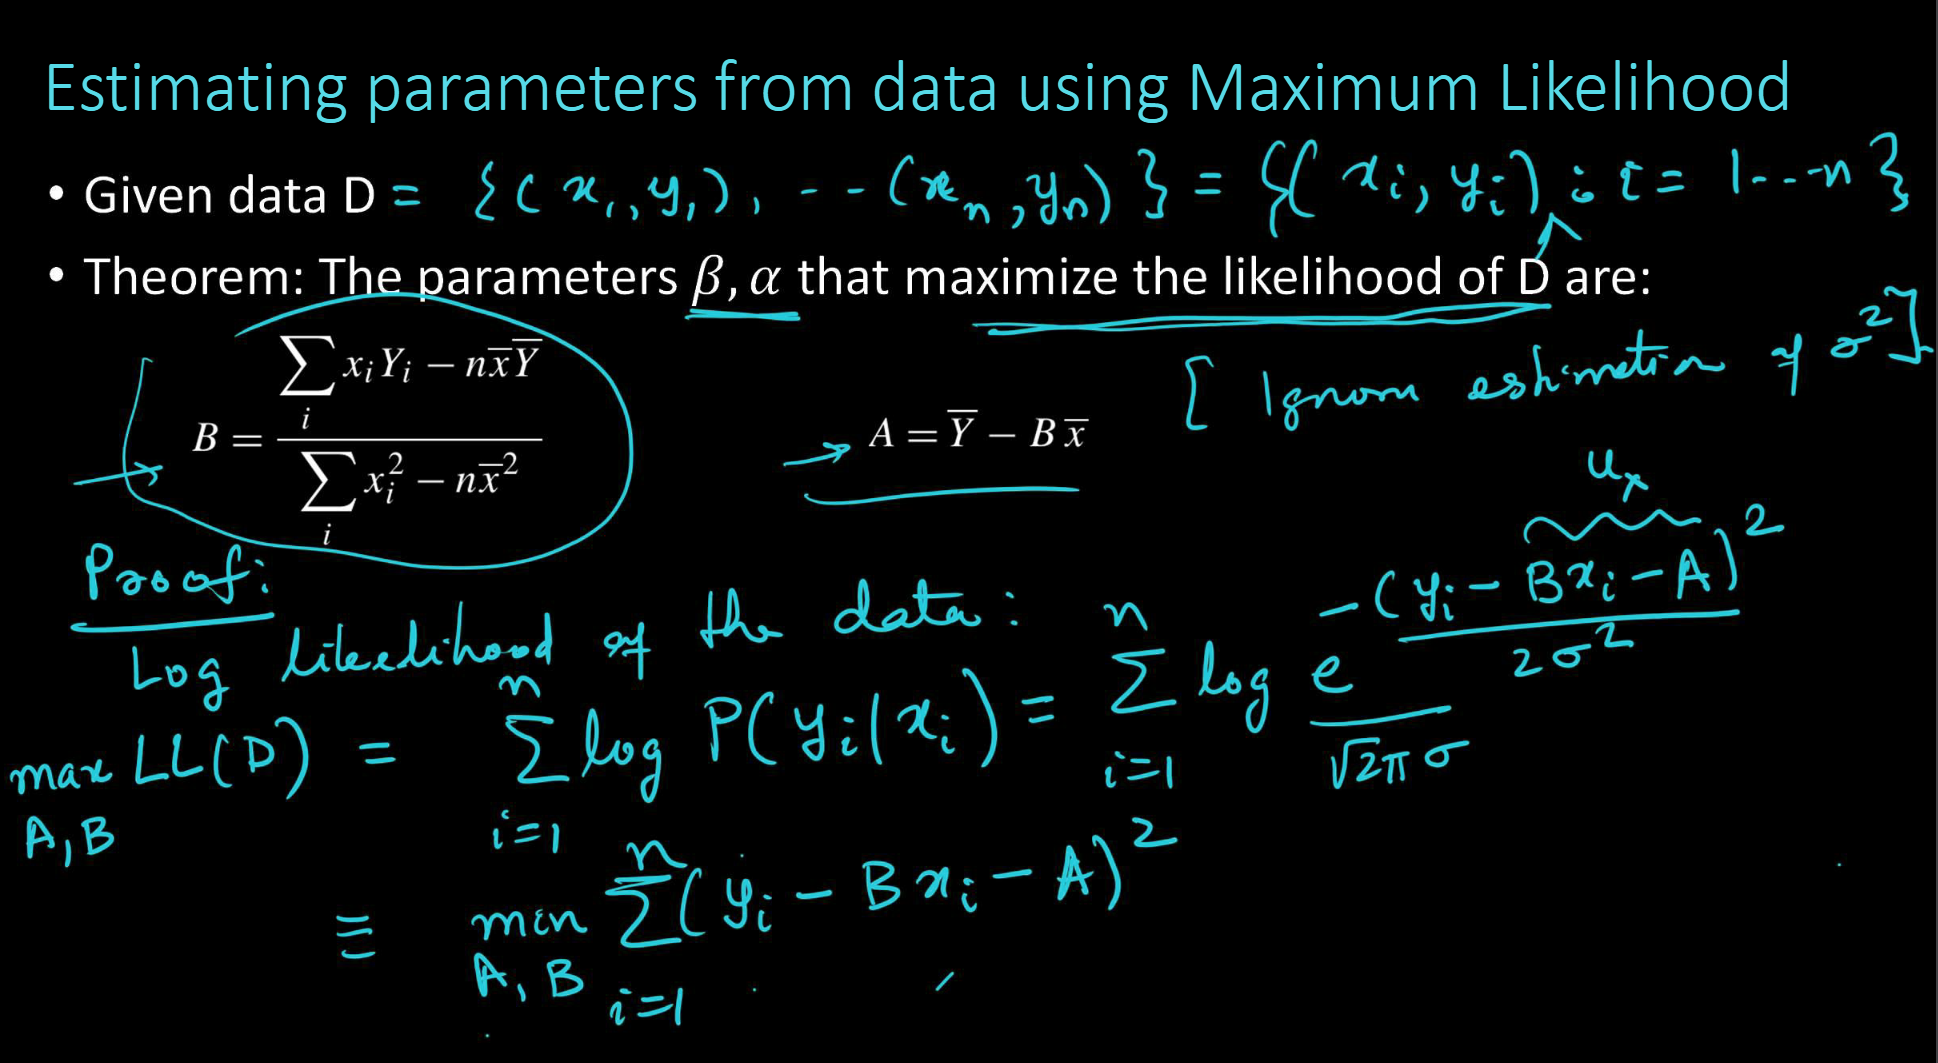 Estimating parameters from data using Maximum Likelihood
• Given data D = {(x₁, y₁), -- (xₙ, yₙ)} = {(xᵢ, yᵢ) : i = 1---n}
• Theorem: The parameters β, α that maximize the likelihood of D are:
[Ignore estimation of σ²]
B = (∑ᵢ xᵢYᵢ − nx̅Y̅) / (∑ᵢ xᵢ² − nx̅²)
A = Y̅ − B x̅
Proof:
uₓ
Log likelihood of the data:
max A,B LL(D) = ∑ᵢ₌₁ⁿ log P(yᵢ|xᵢ) = ∑ᵢ₌₁ⁿ log e^(−(yᵢ − Bxᵢ − A)² / 2σ²) / √2π σ
≡ min A, B ∑ᵢ₌₁ⁿ (yᵢ − Bxᵢ − A)²